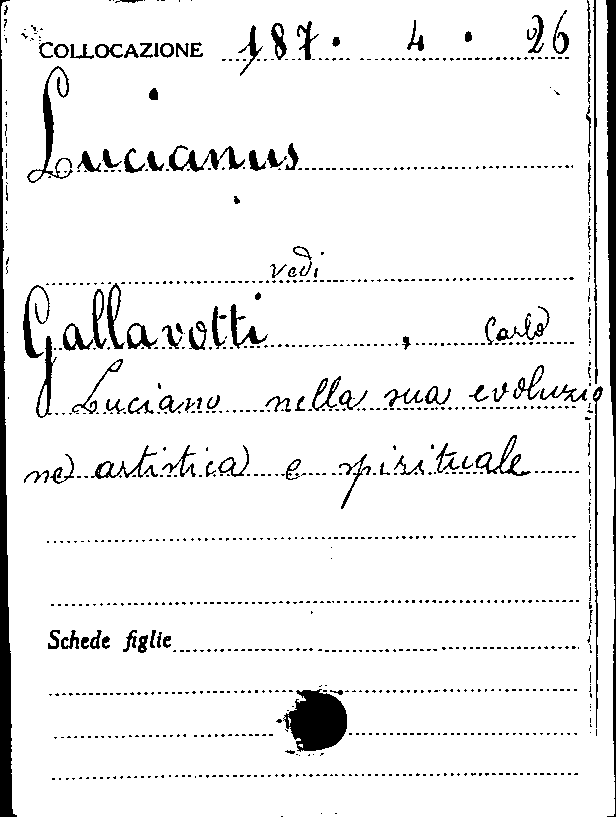 COLLOCAZIONE 187. 4. 26
Lucianus
vedi
Gallavotti, Carlo
Luciano nella sua evoluzio
ne artistica e spirituale
Schede figlie